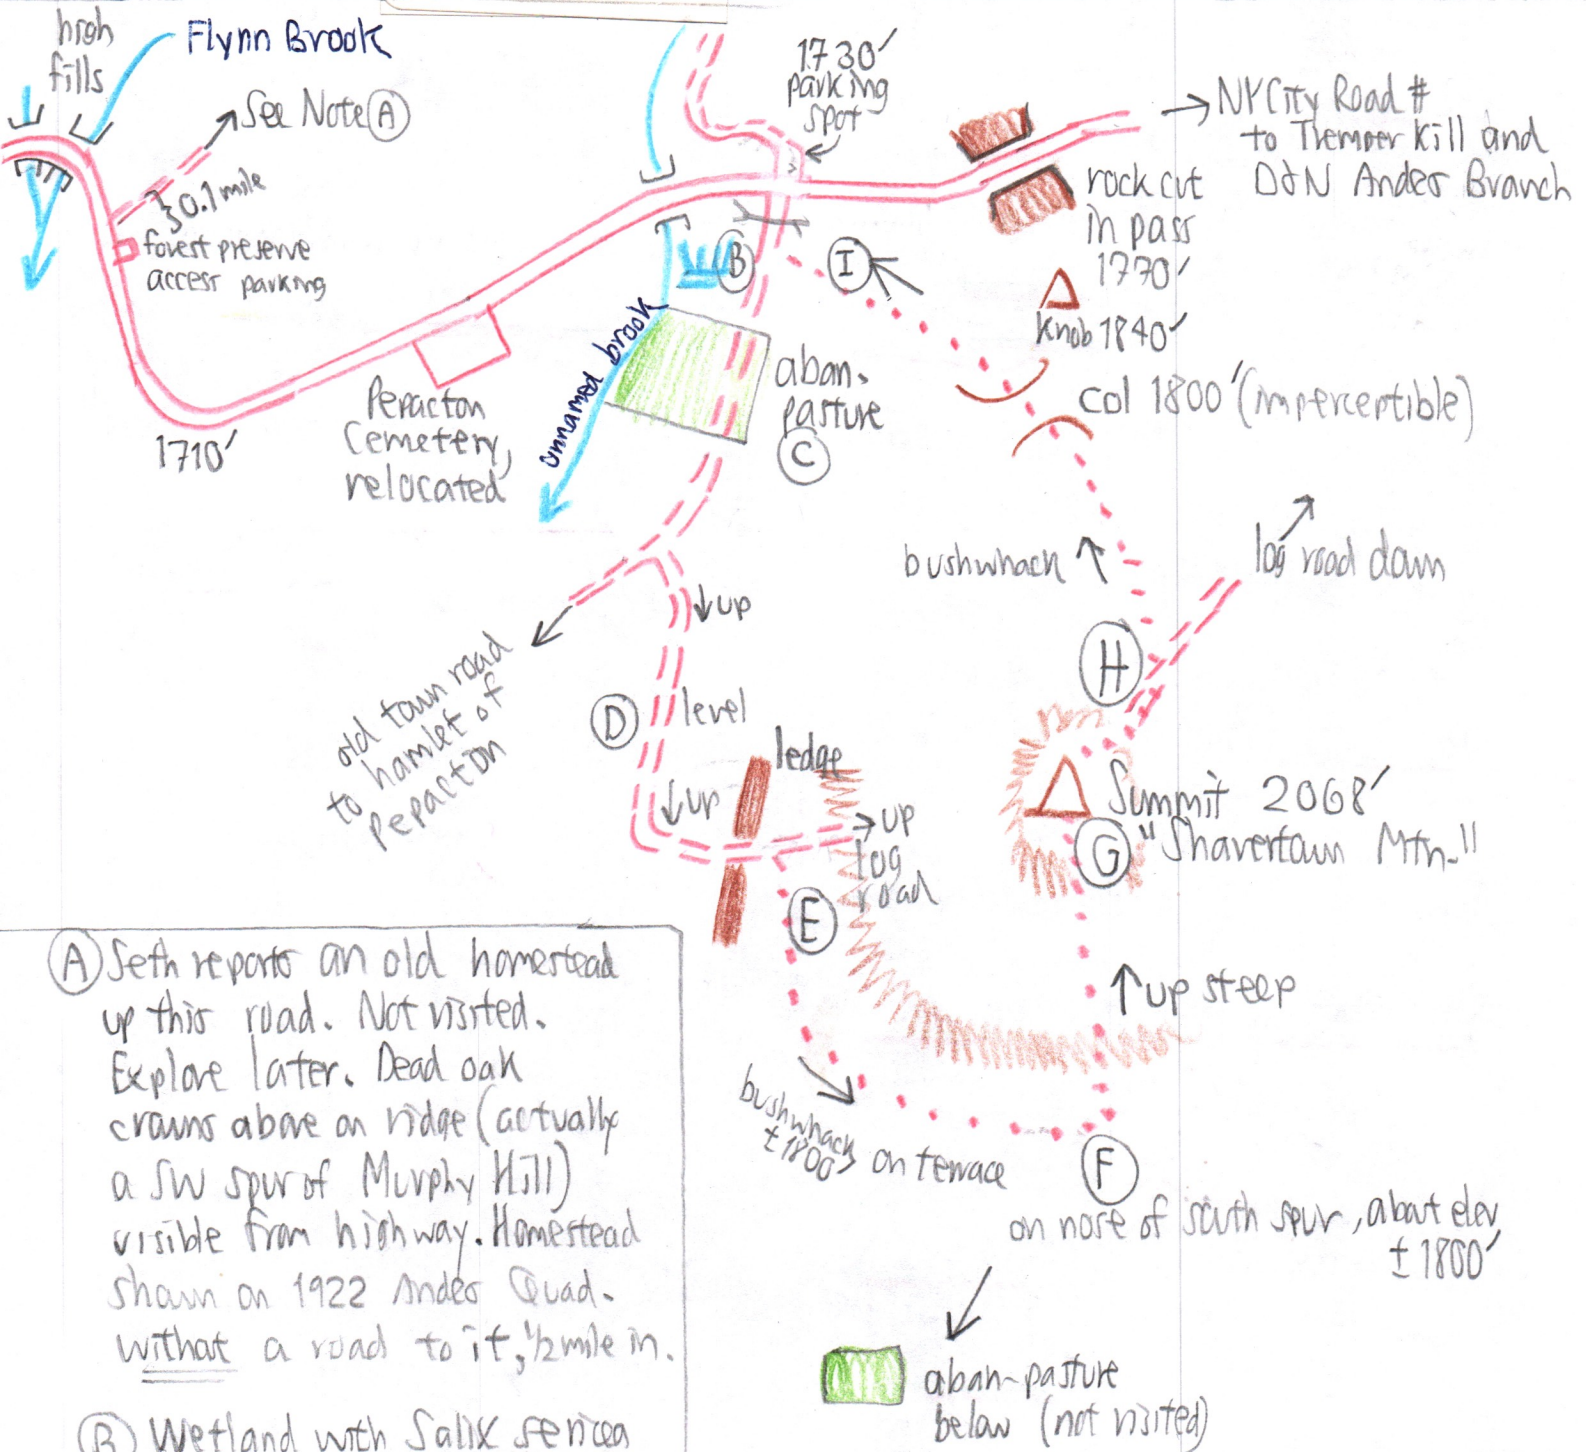 high
fills
Flynn Brook
See Note (A)
0.1 mile
forest preserve
access parking
1730'
parking
spot
NY City Road #
to Tremper Kill and
D&N Andes Branch
rock cut
in pass
1770'
Knob 1840'
col 1800' (imperceptible)
I
B
unnamed brook
aban.
pasture
C
Pepacton
Cemetery,
relocated
1710'
bushwhack
log road down
up
H
old town road
to hamlet of
Pepaction
D
level
ledge
up
up
log
road
Summit 2068'
G
"Shavertown Mtn."
E
up steep
bushwhack
±1800'
on terrace
F
on nose of south spur, about elev
±1800'
aban-pasture
below (not visited)
A Seth reports an old homestead
up this road. Not visited.
Explore later. Dead oak
crowns above on ridge (actually
a SW spur of Murphy Hill)
visible from highway. Homestead
shown on 1922 Andes Quad.
without a road to it, 1/2 mile in.
B Wetland with Salix sericea